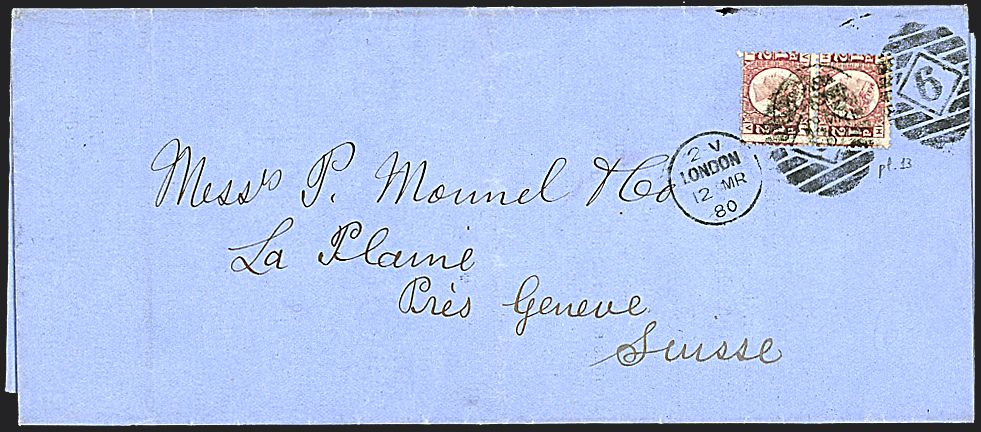 Mess's P. Monnel & Co
La Plaine
Près Geneve
Suisse
2 V
LONDON
12 MR
80
6
pl. 13